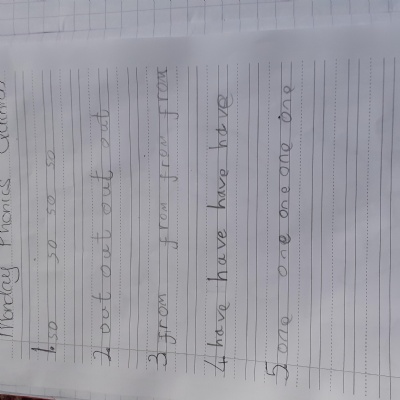 Monday Phonics
1. so so so so
2. out out out out
3 from from from from
4 have have have have
5 one one one one one